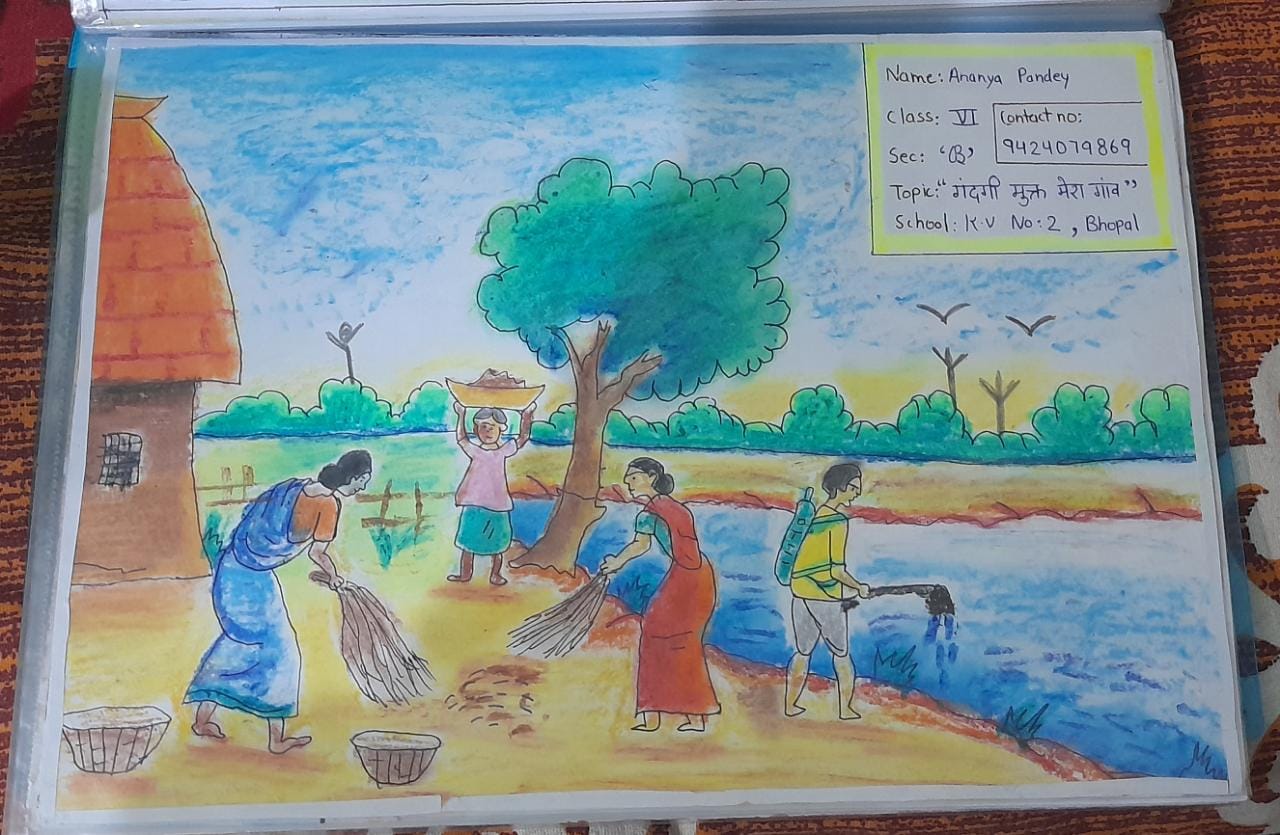 Name: Ananya Pandey
Class: VI
Contact no:
9424079869
Sec: 'B'
Topic: "गंदगी मुक्त मेरा गांव"
School: K.V No: 2, Bhopal